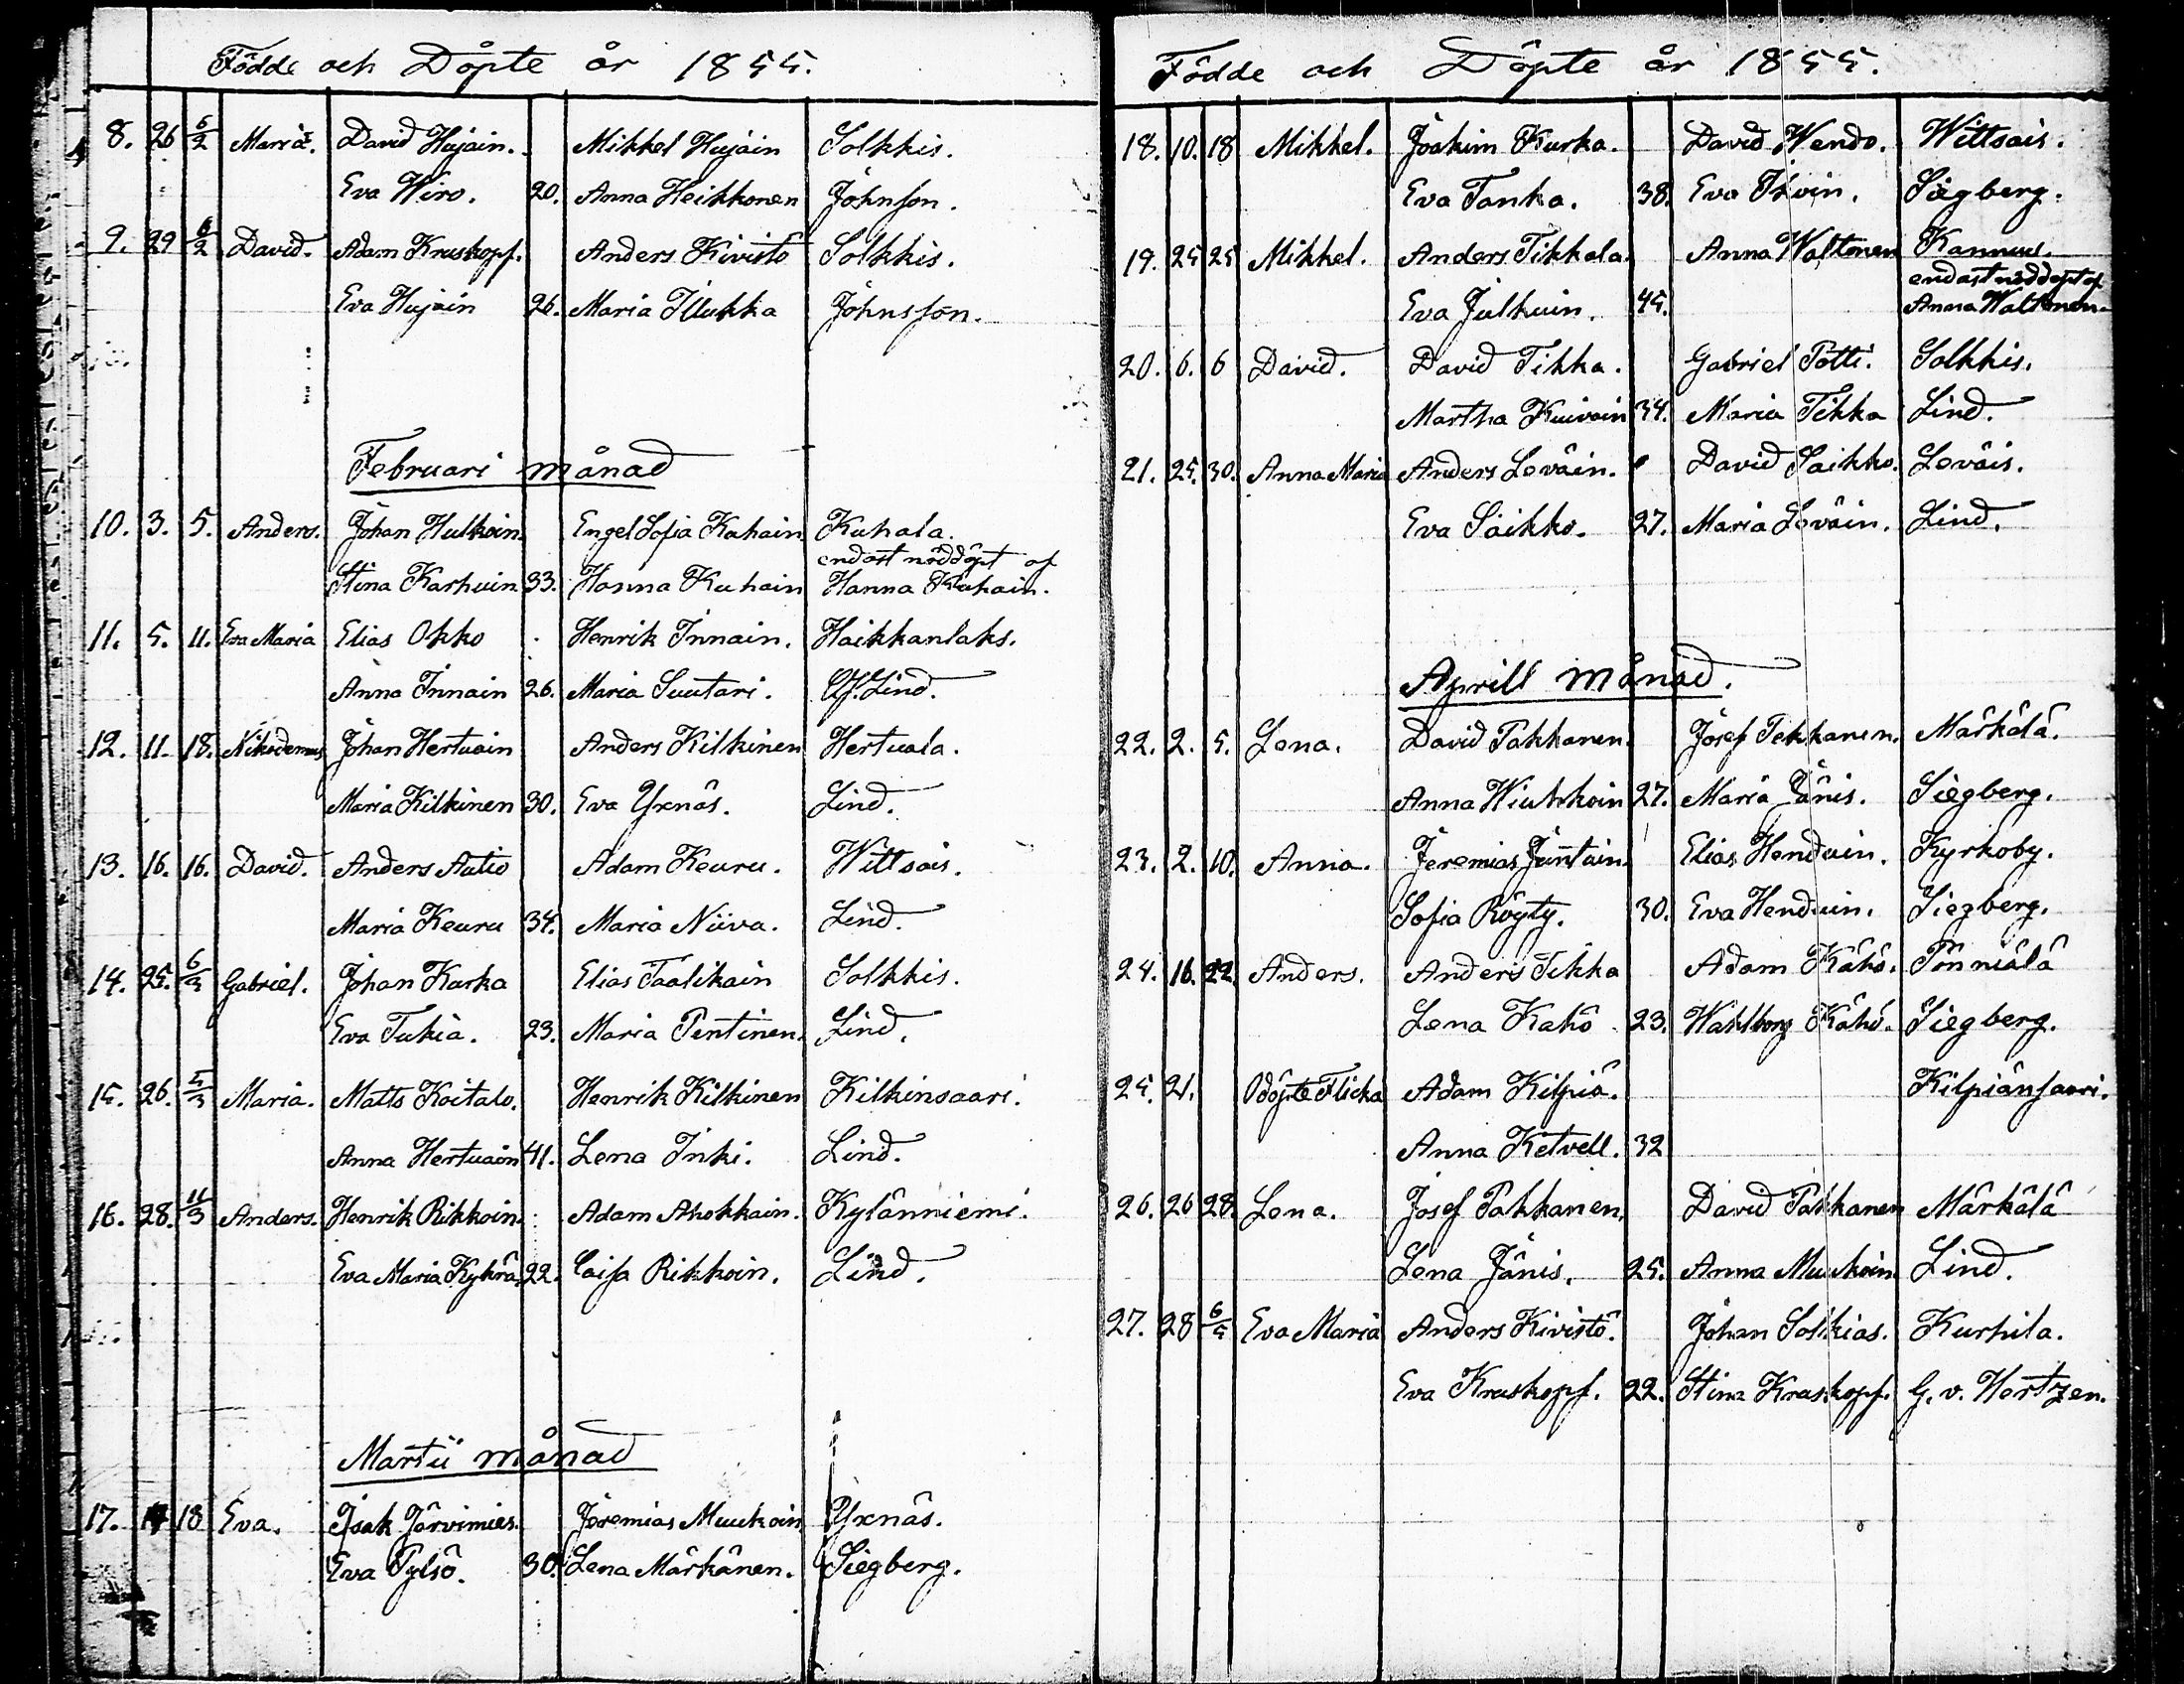 Födde och Döpte år 1855.
8. 26 6/2 Maria. David Hujain. Mikkel Hujain Solkkis.
Eva Wiro. 20. Anna Heikkonen Johnson.
9. 29 6/2 David. Adam Kruskopf. Anders Kivistö Solkkis.
Eva Hujain 26. Maria Illukka Johnsson.
Februari månad
10. 3. 5. Anders. Johan Hulkoin. Engel Sofia Kahain Kuhala.
endast nöddöpt af
Stina Karhuin. 33. Hanna Kuhain Hanna Kuhain.
11. 5. 11. Eva Maria Elias Okko Henrik Innain. Haikkanlaks.
Anna Innain 26. Maria Suutari. Af. Lind.
12. 11. 18. Nikodemus Johan Hertuain Anders Kilkinen Hertuala.
Maria Kilkinen 30. Eva Yxnäs. Lind.
13. 16. 16. David. Anders Autio Adam Keuru. Wittsais.
Maria Keuru 34. Maria Niiva. Lind.
14. 25. Gabriel. Johan Karka Elias Taalikain Solkkis.
Eva Tukia. 23. Maria Pentinen. Lind.
15. 26. 5/3 Maria. Matts Koitalo. Henrik Kilkinen Kilkinsaari.
Anna Hertuain 41. Lena Inki. Lind.
16. 28. 11/3 Anders. Henrik Rikkoin. Adam Ahokkain. Kylänniemi.
Eva Maria Kykrä. 22. Caisa Rikkoin. Lind.
Martii månad
17. 18 Eva. Isak Järvimies. Jeremias Muukoin Yxnäs.
Eva Pylsö. 30. Lena Märkänen. Siegberg.
Födde och Döpte år 1855.
18. 10. 18 Mikkel. Joakim Kurka. David Wendo. Wittsais.
Eva Tanka. 38. Eva Siegberg.
19. 25 25 Mikkel. Anders Tikkala. Anna Waltonen Kannus.
endast nöddöpt af
Eva Julkuin. 45. Anna Waltonen.
20. 6. 6 David. David Tikka. Gabriel Pötti. Solkkis.
Martha Kuivain 34. Maria Tikka Lind.
21. 25. 30. Anna Maria Anders Leväin. David Saikko. Leväis.
Eva Saikko. 27. Maria Leväin. Lind.
Aprill månad.
22. 2. 5. Lena. David Pakkanen. Josef Pekkanen. Märkälä.
Anna Wiukkoin 27. Maria Jänis. Siegberg.
23. 2. 10. Anna. Jeremias Juntain. Elias Henduin. Kyrkoby.
Sofia Röyty. 30. Eva Henduin. Siegberg.
24. 16. 22. Anders. Anders Tikka Adam Kähö. Pönniälä
Lena Kähö 23. Wahlborg Kähö. Siegberg.
25. 21. Odöpte Flicka Adam Kilpiä. Kilpiänsaari.
Anna Ketvell. 32
26. 26 28. Lena. Josef Pakkanen. David Pakkanen Märkälä
Lena Jänis. 25. Anna Muukoin Lind.
27. 28 6/5 Eva Maria Anders Kivistö. Johan Solkias. Kurhila.
Eva Kruskopf. 22. Stina Kruskopf. G. v. Hertzen.